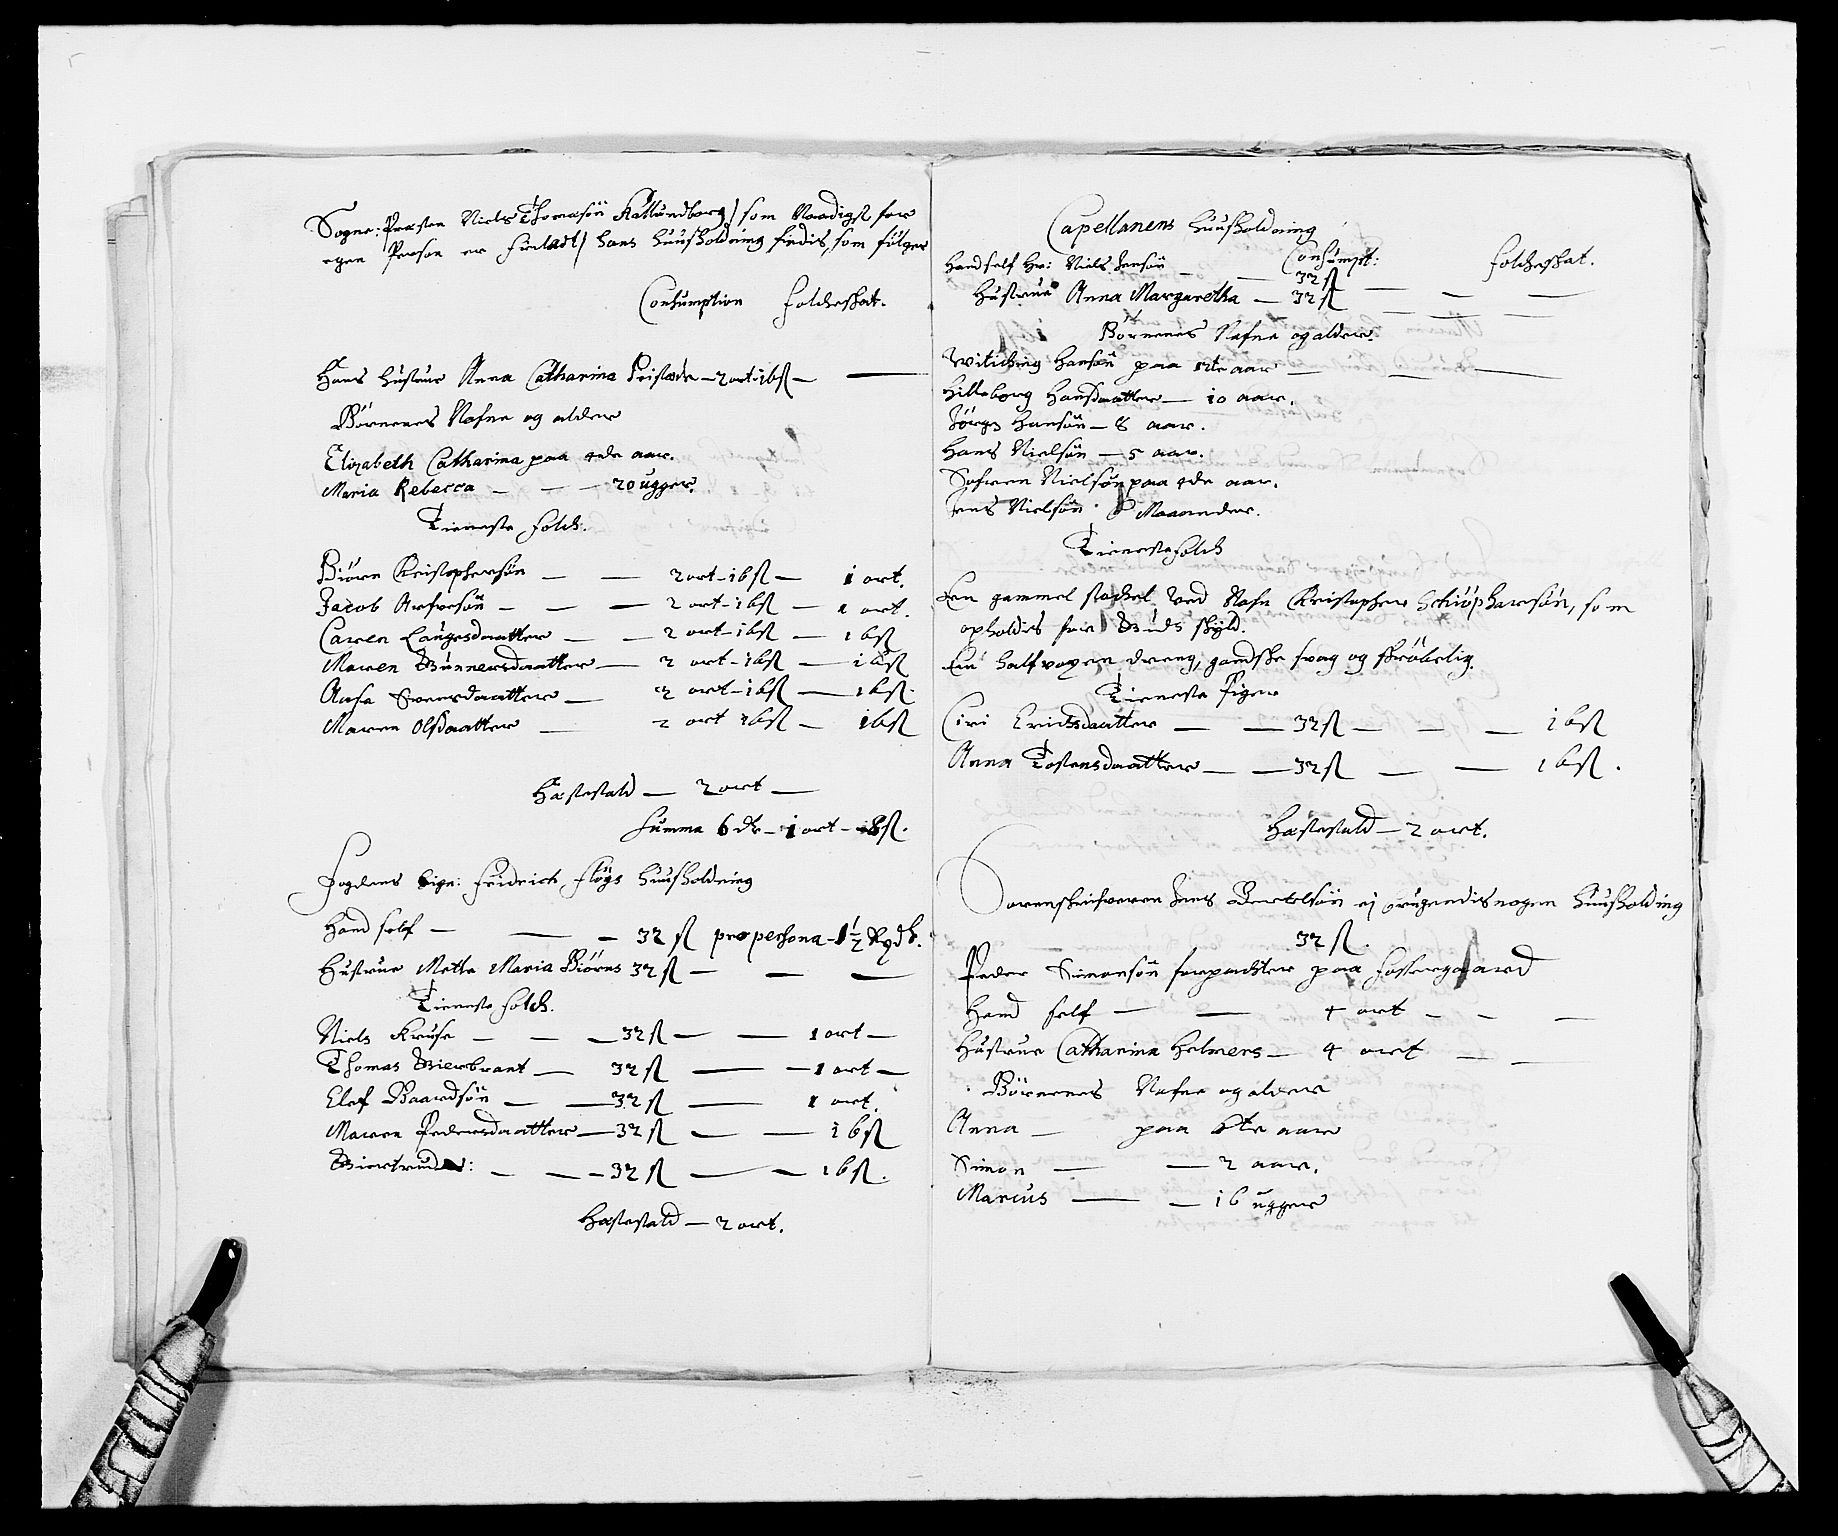 Sogne: Præsten Niels Thomasøn Kallundborg / som Naadigst for
egen Person er forladt / hans huusholdning findis, som følger
Consumption folcheskat.
Hans hustrue Anna Catharina Pristøde – 2 ort – 16 ß –
Børnenes Nafne og alder
Elizabeth Catharina paa 4de aar.
Maria Rebecca – – – 20 ugger.
Tieneste folch.
Biørn Christophersøn – – 2 ort – 16 ß – 1 ort.
Jacob Arfvesøn – – – 2 ort – 16 ß – 1 ort.
Caren Laugesdaatter – – 2 ort – 16 ß – 16 ß
Maren Gunnersdaatter – 2 ort – 16 ß – 16 ß
Aase Svensdaatter – 2 ort – 16 ß – 16 ß.
Maren Olsdaatter – 2 ort 16 ß – 16 ß
Hæstestald – 2 ort –
Summa 6 dr – 1 ort – 8 ß.
Fogdens Sign: Fridrich Fløgs huusholdning
Hand self – – – 32 ß pro persona – 1½ Rd.
Hustrue Mette Maria Biørns 32 ß – – –
Tieneste folch.
Niels Kruse – – – 32 ß – – 1 ort –
Thomas Bierbrant – 32 ß – – 1 ort –
Elef Baardsøn – – 32 ß – 1 ort.
Maren Pedersdaatter – 32 ß – – 16 ß
Giertrud: – – – 32 ß – – 16 ß.
Hæstestald – 2 ort.
Capellanens huusholdning
Consumpt: folcheskat.
Hand self Hr: Niels Hensøn – – 32 ß – – –
Hustrue Anna Margaretha – 32 ß – – –
Børnenes Nafne og alder.
Witiching Hansøn paa 12te aar – – –
Hilleborg Hansdaatter – 10 aar.
Jørgen Hansøn – 8 aar.
Hans Nielsøn – 5 aar.
Søfren Nielsøn paa 4de aar.
Jens Nielsøn 8 Maaneder.
Tieneste folch
Een gammel stachel ved Nafn Christopher Schiøpharsøn, som
opholdis for Guds skyld.
Een halfvoxen dreng, gandske svag og skrøbelig.
Tieneste Piger
Ciri Erichsdaatter – – 32 ß – – – 16 ß
Anna Tostensdaatter – – 32 ß – – 16 ß.
Hæstestald – 2 ort.
Sorenskrifveren Jens Bertelsøn ej brugendis nogen huusholding
32 ß.
Peder Simonsøn forpachter paa Fossergaard
Hand self – – 4 ort – – –
Hustrue Catharina Helmers – 4 ort – –
Børnenes Nafne og alder
Anna – paa 6te aar
Simon – – 2 aar.
Marcus – – 16 ugger